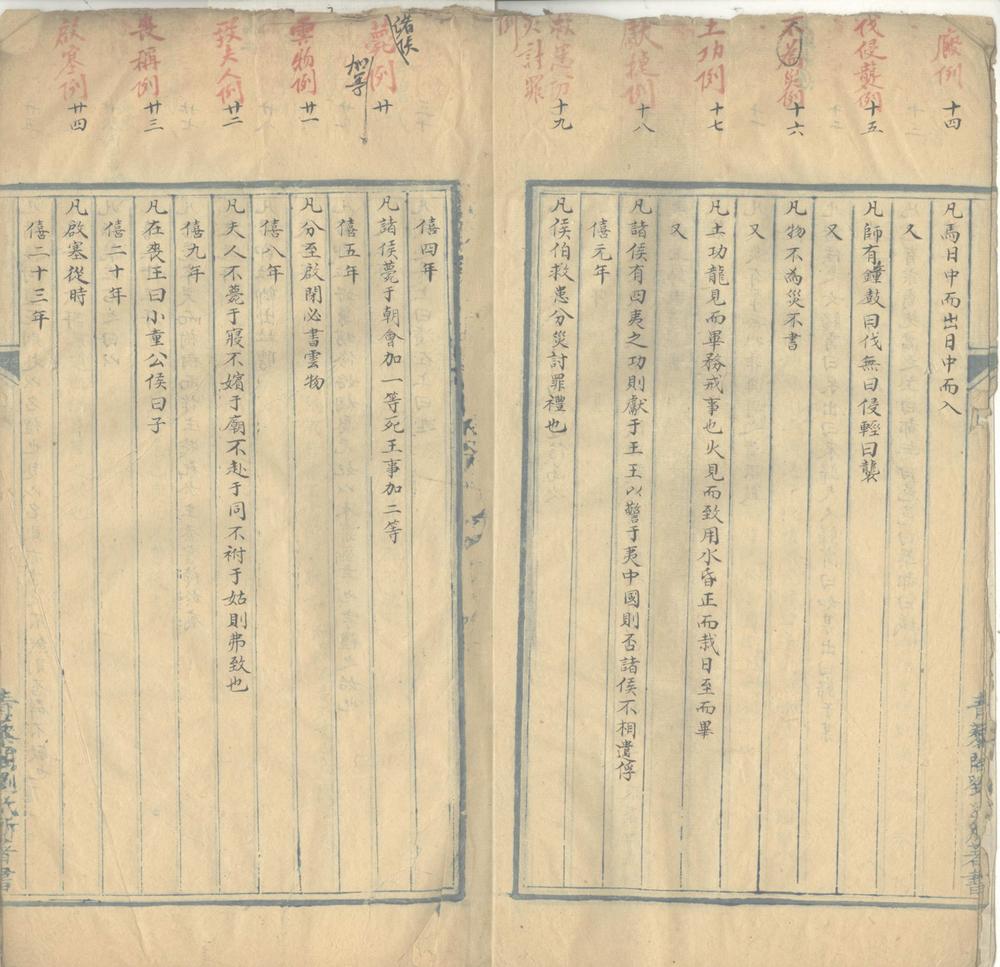 廄例 十四
伐侵襲例 十五
不為災例 十六
土功例 十七
獻捷例 十八
救患分災討罪例 十九
凡馬日中而出日中而入
又
凡師有鐘鼓曰伐無曰侵輕曰襲
又
凡物不為災不書
又
凡土功龍見而畢務戒事也火見而致用水昏正而栽日至而畢
又
凡諸侯有四夷之功則獻于王王以警于夷中國則否諸侯不相遺俘
僖元年
凡侯伯救患分災討罪禮也
諸侯薨例加等 廿
雲物例 廿一
致夫人例 廿二
喪稱例 廿三
啟塞例 廿四
僖四年
凡諸侯薨于朝會加一等死王事加二等
僖五年
凡分至啟閉必書雲物
僖八年
凡夫人不薨于寢不殯于廟不赴于同不祔于姑則弗致也
僖九年
凡在喪王曰小童公侯曰子
僖二十年
凡啟塞從時
僖二十三年